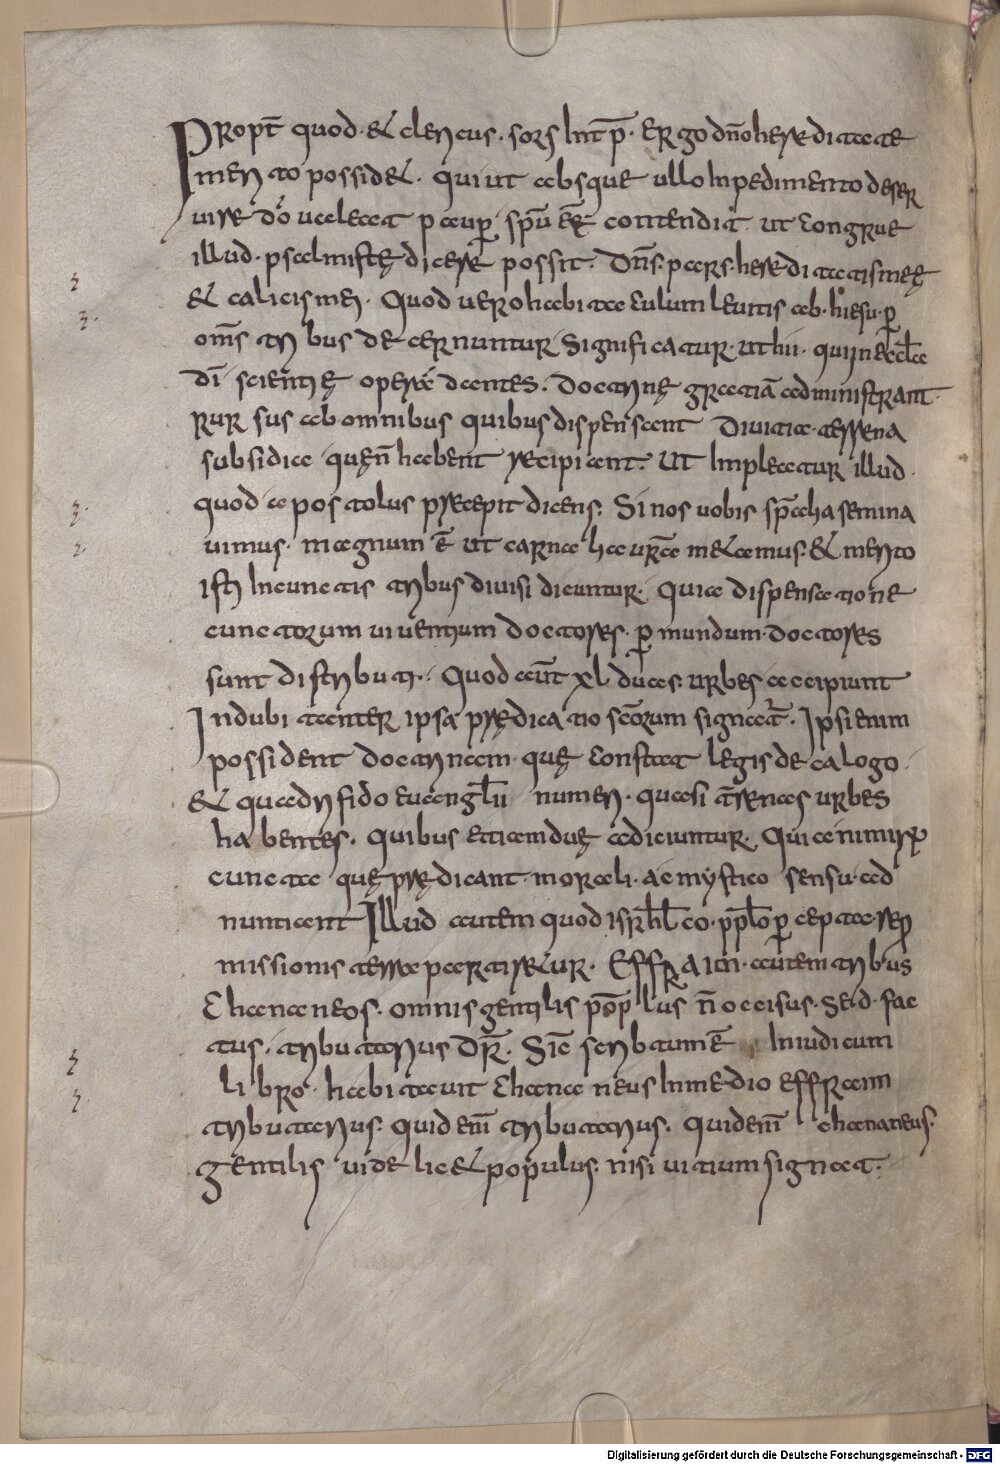 Propt̄ quod · & clericus · sors Int̄p̄ · Ergo dn̄o hereditate
merito possid& · qui ut absque ullo Inpedimento deser
uire dō ualeat pauꝑ sp̄u eē contendit · ut congrue
illud · psalmistę dicere possit · Dn̄s · pars · hereditatis meę
& calicis mei · Quod uero habitacculum leuitis ab · hiesu · ꝑ
om̄s tribus decernuntur significatur · ut hii · qui in eccła
dī scientię operā dantes · doctrinę gratiā administrant
rursus ab omnibus quibus dispensant diuitia · terrena
subsidia quę n̄ habent recipiant · Ut Impleatur illud
quod apostolus precepit dicens · Si nos uobis sp̄alia semina
uimus · magnum ē ut carnalia urā m&amus · & merito
isti In cunctis tribus diuisi dicuntur · Quia dispensatione
cunctorum uiuentium doctores · ꝑ mundum · doctores
sunt distributi · Quod aūt xl duces · urbes accipiunt
Indubitanter ipsa prędicatio sc̄orum signat̄ · Ipsi enim
possident doctrinam · quę constat legis decalogo
& quadrifido euanglii numeri · quasi t̄renas urbes
habentes · quibus etiam duę adiciuntur · Quia nimirū
cuncta quę prędicant · morali · ac mystico sensu · ad
nuntiant Illud autem quod isrl̄ · co · pplo ꝑ cepta · rep̄
missionis terra partir&ur · Effraim · autem tribus
Chananeos · omnis gentilis popłus n̄ occisus · Sed · fac
tus · tributarius dr̄ · Sic scribtum ē In iudicum
libro · habitauit Chananeus In medio effraim
tributarius · quid enī tributarius · quid enī chananeus ·
gentilis uidelic& populus · nisi uitium signat ·